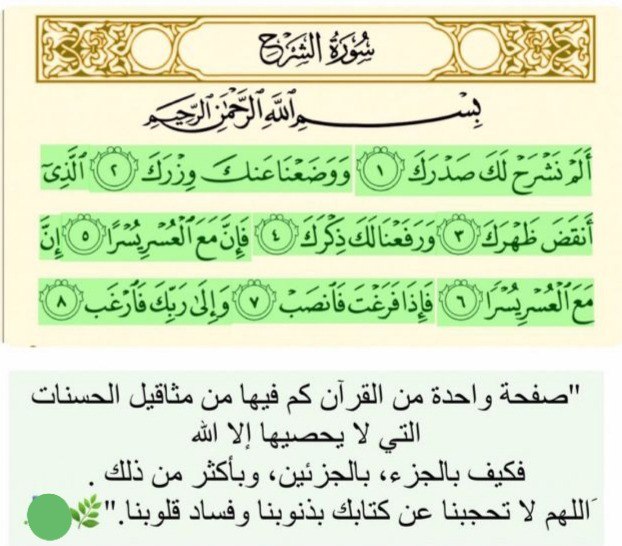 سُورَةُ الشَّرْحِ
بِسْمِ ٱللَّهِ ٱلرَّحْمَٰنِ ٱلرَّحِيمِ
أَلَمْ نَشْرَحْ لَكَ صَدْرَكَ ١ وَوَضَعْنَا عَنكَ وِزْرَكَ ٢ ٱلَّذِىٓ
أَنقَضَ ظَهْرَكَ ٣ وَرَفَعْنَا لَكَ ذِكْرَكَ ٤ فَإِنَّ مَعَ ٱلْعُسْرِ يُسْرًا ٥ إِنَّ
مَعَ ٱلْعُسْرِ يُسْرًا ٦ فَإِذَا فَرَغْتَ فَٱنصَبْ ٧ وَإِلَىٰ رَبِّكَ فَٱرْغَب ٨
"صفحة واحدة من القرآن كم فيها من مثاقيل الحسنات
التي لا يحصيها إلا الله
فكيف بالجزء، بالجزئين، وبأكثر من ذلك .
َاللهم لا تحجبنا عن كتابك بذنوبنا وفساد قلوبنا."